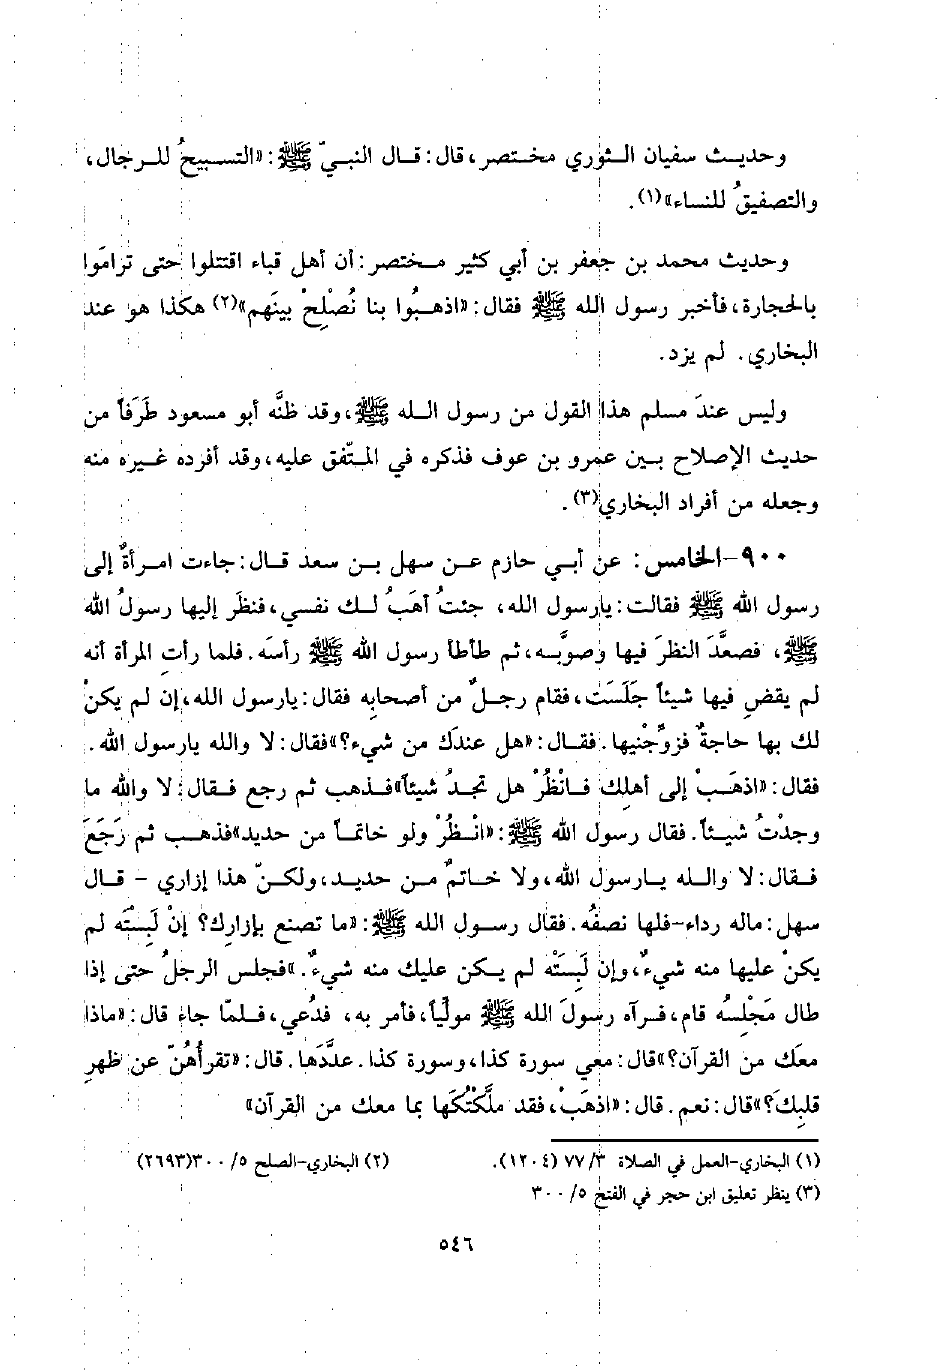 وحديث سفيان الثوري مختصر، قال: قال النبيّ ﷺ: «التسبيحُ للرجال،
والتصفيقُ للنساء»(١).
وحديث محمد بن جعفر بن أبي كثير مختصر: أن أهل قباء اقتتلوا حتى تراموا
بالحجارة، فأخبر رسول الله ﷺ فقال: «اذهبُوا بنا نُصْلِحْ بينَهم»(٢) هكذا هو عند
البخاري. لم يزد.
وليس عندَ مسلم هذا القول من رسول الله ﷺ، وقد ظنَّه أبو مسعود طَرَفاً من
حديث الإصلاح بين عمرو بن عوف فذكره في المتّفق عليه، وقد أفرده غيره منه
وجعله من أفراد البخاري(٣).
٩٠٠-الخامس: عن أبي حازم عن سهل بن سعد قال: جاءت امرأةٌ إلى
رسول الله ﷺ فقالت: يارسول الله، جئتُ أهَبُ لك نفسي، فنظَر إليها رسولُ الله
ﷺ، فصعَّدَ النظرَ فيها وصوَّبه، ثم طأطأ رسول الله ﷺ رأسَه. فلما رأت المرأة أنه
لم يقضِ فيها شيئاً جَلَسَت، فقام رجلٌ من أصحابِه فقال: يارسول الله، إن لم يكنْ
لك بها حاجةٌ فزوِّجْنيها. فقال: «هل عندَك من شيء؟» فقال: لا والله يارسول الله.
فقال: «اذهَبْ إلى أهلِك فانْظُرْ هل تجدُ شيئاً» فذهب ثم رجع فقال: لا والله ما
وجدْتُ شيئاً. فقال رسول الله ﷺ: «انْظُرْ ولو خاتماً من حديد» فذهب ثم رَجَعَ
فقال: لا والله يارسول الله، ولا خاتمٌ من حديد، ولكنّ هذا إزاري - قال
سهل: ماله رداء-فلها نصفُه. فقال رسول الله ﷺ: «ما تصنع بإزارك؟ إنْ لَبِسْتَه لم
يكنْ عليها منه شيءٌ، وإن لَبِسَتْه لم يكن عليك منه شيءٌ.» فجلس الرجلُ حتى إذا
طال مَجْلِسُه قام، فرآه رسولَ الله ﷺ مولِّياً، فأمر به، فدُعي، فلمّا جاء قال: «ماذا
معَك من القرآن؟» قال: معي سورة كذا، وسورة كذا. عدَّدَها. قال: «تقرأُهُنّ عن ظهرِ
قلبِكَ؟» قال: نعم. قال: «اذهَبْ، فقد ملَّكْتُكَها بما معك من القرآن»
(١) البخاري-العمل في الصلاة ٣/ ٧٧ (١٢٠٤). (٢) البخاري-الصلح ٥/ ٣٠٠(٢٦٩٣)
(٣) ينظر تعليق ابن حجر في الفتح ٥/ ٣٠٠
٥٤٦